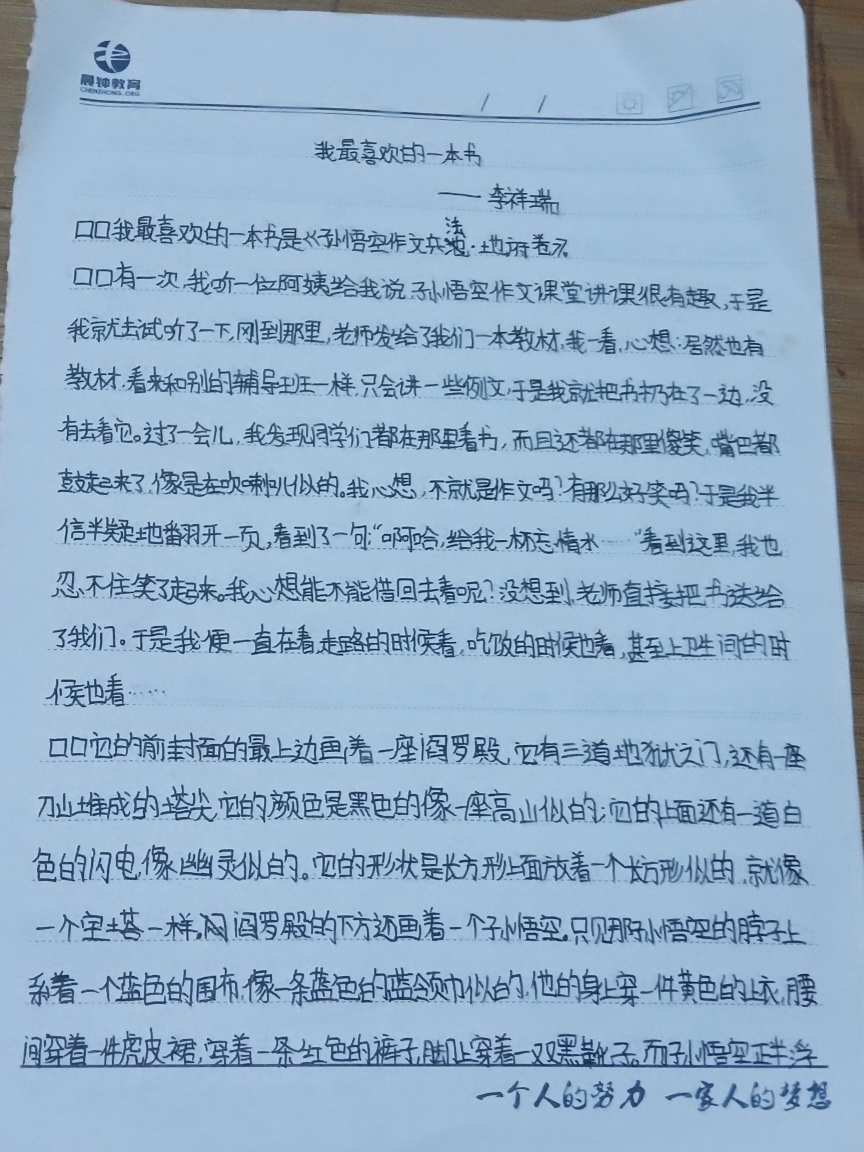 晨钟教育
CHENZHONG.ORG
/ /
我最喜欢的一本书
——李祥瑞
口口我最喜欢的一本书是《孙悟空作文兵法·地府卷》。
口口有一次,我听一位阿姨给我说,孙悟空作文课堂讲课很有趣,于是
我就去试听了一下,刚到那里,老师发给了我们一本教材,我一看,心想:居然也有
教材,看来和别的辅导班一样,只会讲一些例文,于是我就把书扔在了一边,没
有去看它。过了一会儿,我发现同学们都在那里看书,而且还都在那里傻笑,嘴巴都
鼓起来了,像是在吹喇叭似的。我心想,不就是作文吗?有那么好笑吗?于是我半
信半疑地翻开一页,看到了一句:“啊哈,给我一杯忘情水……”看到这里,我也
忍不住笑了起来。我心想能不能借回去看呢?没想到,老师直接把书送给
了我们。于是我便一直在看,走路的时候看,吃饭的时候也看,甚至上卫生间的时
候也看……
口口它的前封面的最上边画着一座阎罗殿,它有三道地狱之门,还有一座
刀山堆成的塔尖,它的颜色是黑色的像一座高山似的;它的上面还有一道白
色的闪电,像幽灵似的。它的形状是长方形上面放着一个长方形似的,就像
一个宝塔一样。阎罗殿的下方还画着一个孙悟空。只见那孙悟空的脖子上
系着一个蓝色的围布,像一条蓝色的蓝领巾似的,他的身上穿一件黄色的上衣,腰
间穿着一件虎皮裙,穿着一条红色的裤子,脚上穿着一双黑靴子。而孙悟空正半浮
一个人的努力 一家人的梦想